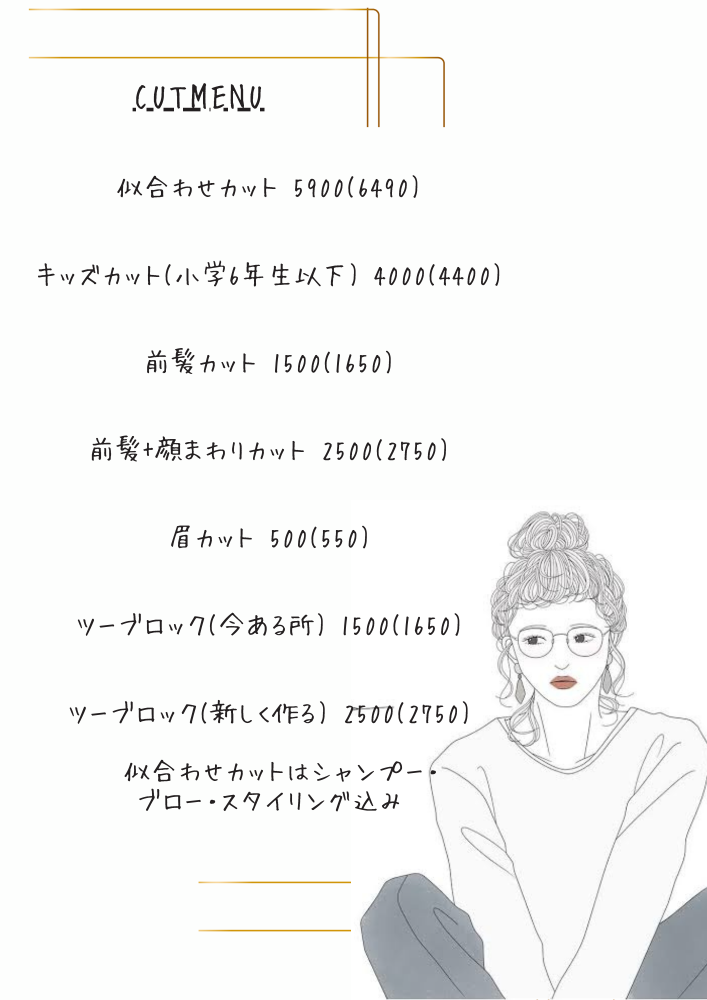 CUTMENU
似合わせカット 5900(6490)
キッズカット(小学6年生以下) 4000(4400)
前髪カット 1500(1650)
前髪+顔まわりカット 2500(2750)
眉カット 500(550)
ツーブロック(今ある所) 1500(1650)
ツーブロック(新しく作る) 2500(2750)
似合わせカットはシャンプー・
ブロー・スタイリング込み